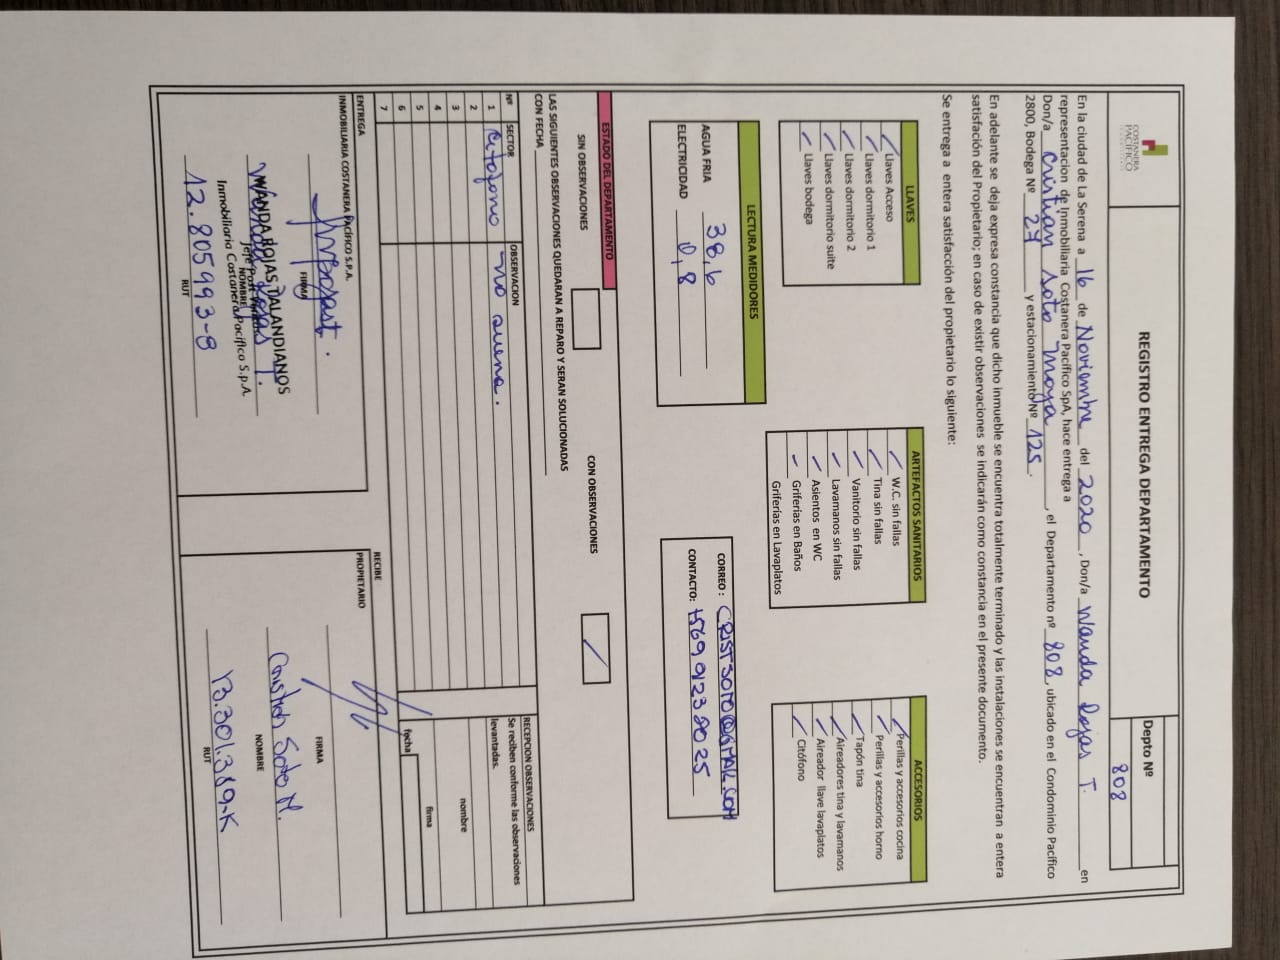 COSTANERA
PACÍFICO
REGISTRO ENTREGA DEPARTAMENTO
Depto Nº
808
En la ciudad de La Serena a 16 de Noviembre del 2020, Don/a Wanda Rojas T. en
representacion de Inmobiliaria Costanera Pacífico SpA, hace entrega a
Don/a Cristian Soto Moya, el Departamento nº 808, ubicado en el Condominio Pacífico
2800, Bodega Nº 27 y estacionamiento Nº 125.
En adelante se deja expresa constancia que dicho inmueble se encuentra totalmente terminado y las instalaciones se encuentran a entera
satisfacción del Propietario; en caso de existir observaciones se indicarán como constancia en el presente documento.
Se entrega a entera satisfacción del propietario lo siguiente:
LLAVES
✓ Llaves Acceso
✓ Llaves dormitorio 1
✓ Llaves dormitorio 2
✓ Llaves dormitorio suite
✓ Llaves bodega
ARTEFACTOS SANITARIOS
✓ W.C. sin fallas
✓ Tina sin fallas
✓ Vanitorio sin fallas
✓ Lavamanos sin fallas
✓ Asientos en WC
✓ Griferias en Baños
Griferías en Lavaplatos
ACCESORIOS
✓ Perillas y accesorios cocina
✓ Perillas y accesorios horno
✓ Tapón tina
✓ Aireadores tina y lavamanos
✓ Aireador llave lavaplatos
✓ Citófono
LECTURA MEDIDORES
AGUA FRIA 38,6
ELECTRICIDAD 0,8
CORREO: CRISTSOTO@GMAIL.COM
CONTACTO: +56991238025
ESTADO DEL DEPARTAMENTO
SIN OBSERVACIONES
CON OBSERVACIONES ✓
LAS SIGUIENTES OBSERVACIONES QUEDARAN A REPARO Y SERAN SOLUCIONADAS
CON FECHA
Nº SECTOR OBSERVACION
1 Citofono no suena.
2
3
4
5
6
7
RECEPCION OBSERVACIONES
Se reciben conforme las observaciones
levantadas.
nombre
firma
fecha
ENTREGA
INMOBILIARIA COSTANERA PACÍFICO S.P.A.
FIRMA
WANDA ROJAS TALANDIANOS
NOMBRE
Inmobiliaria Costanera Pacífico S.p.A.
12.805993-8
RUT
RECIBE
PROPIETARIO
FIRMA
Cristian Soto M.
NOMBRE
13.301.389-K
RUT